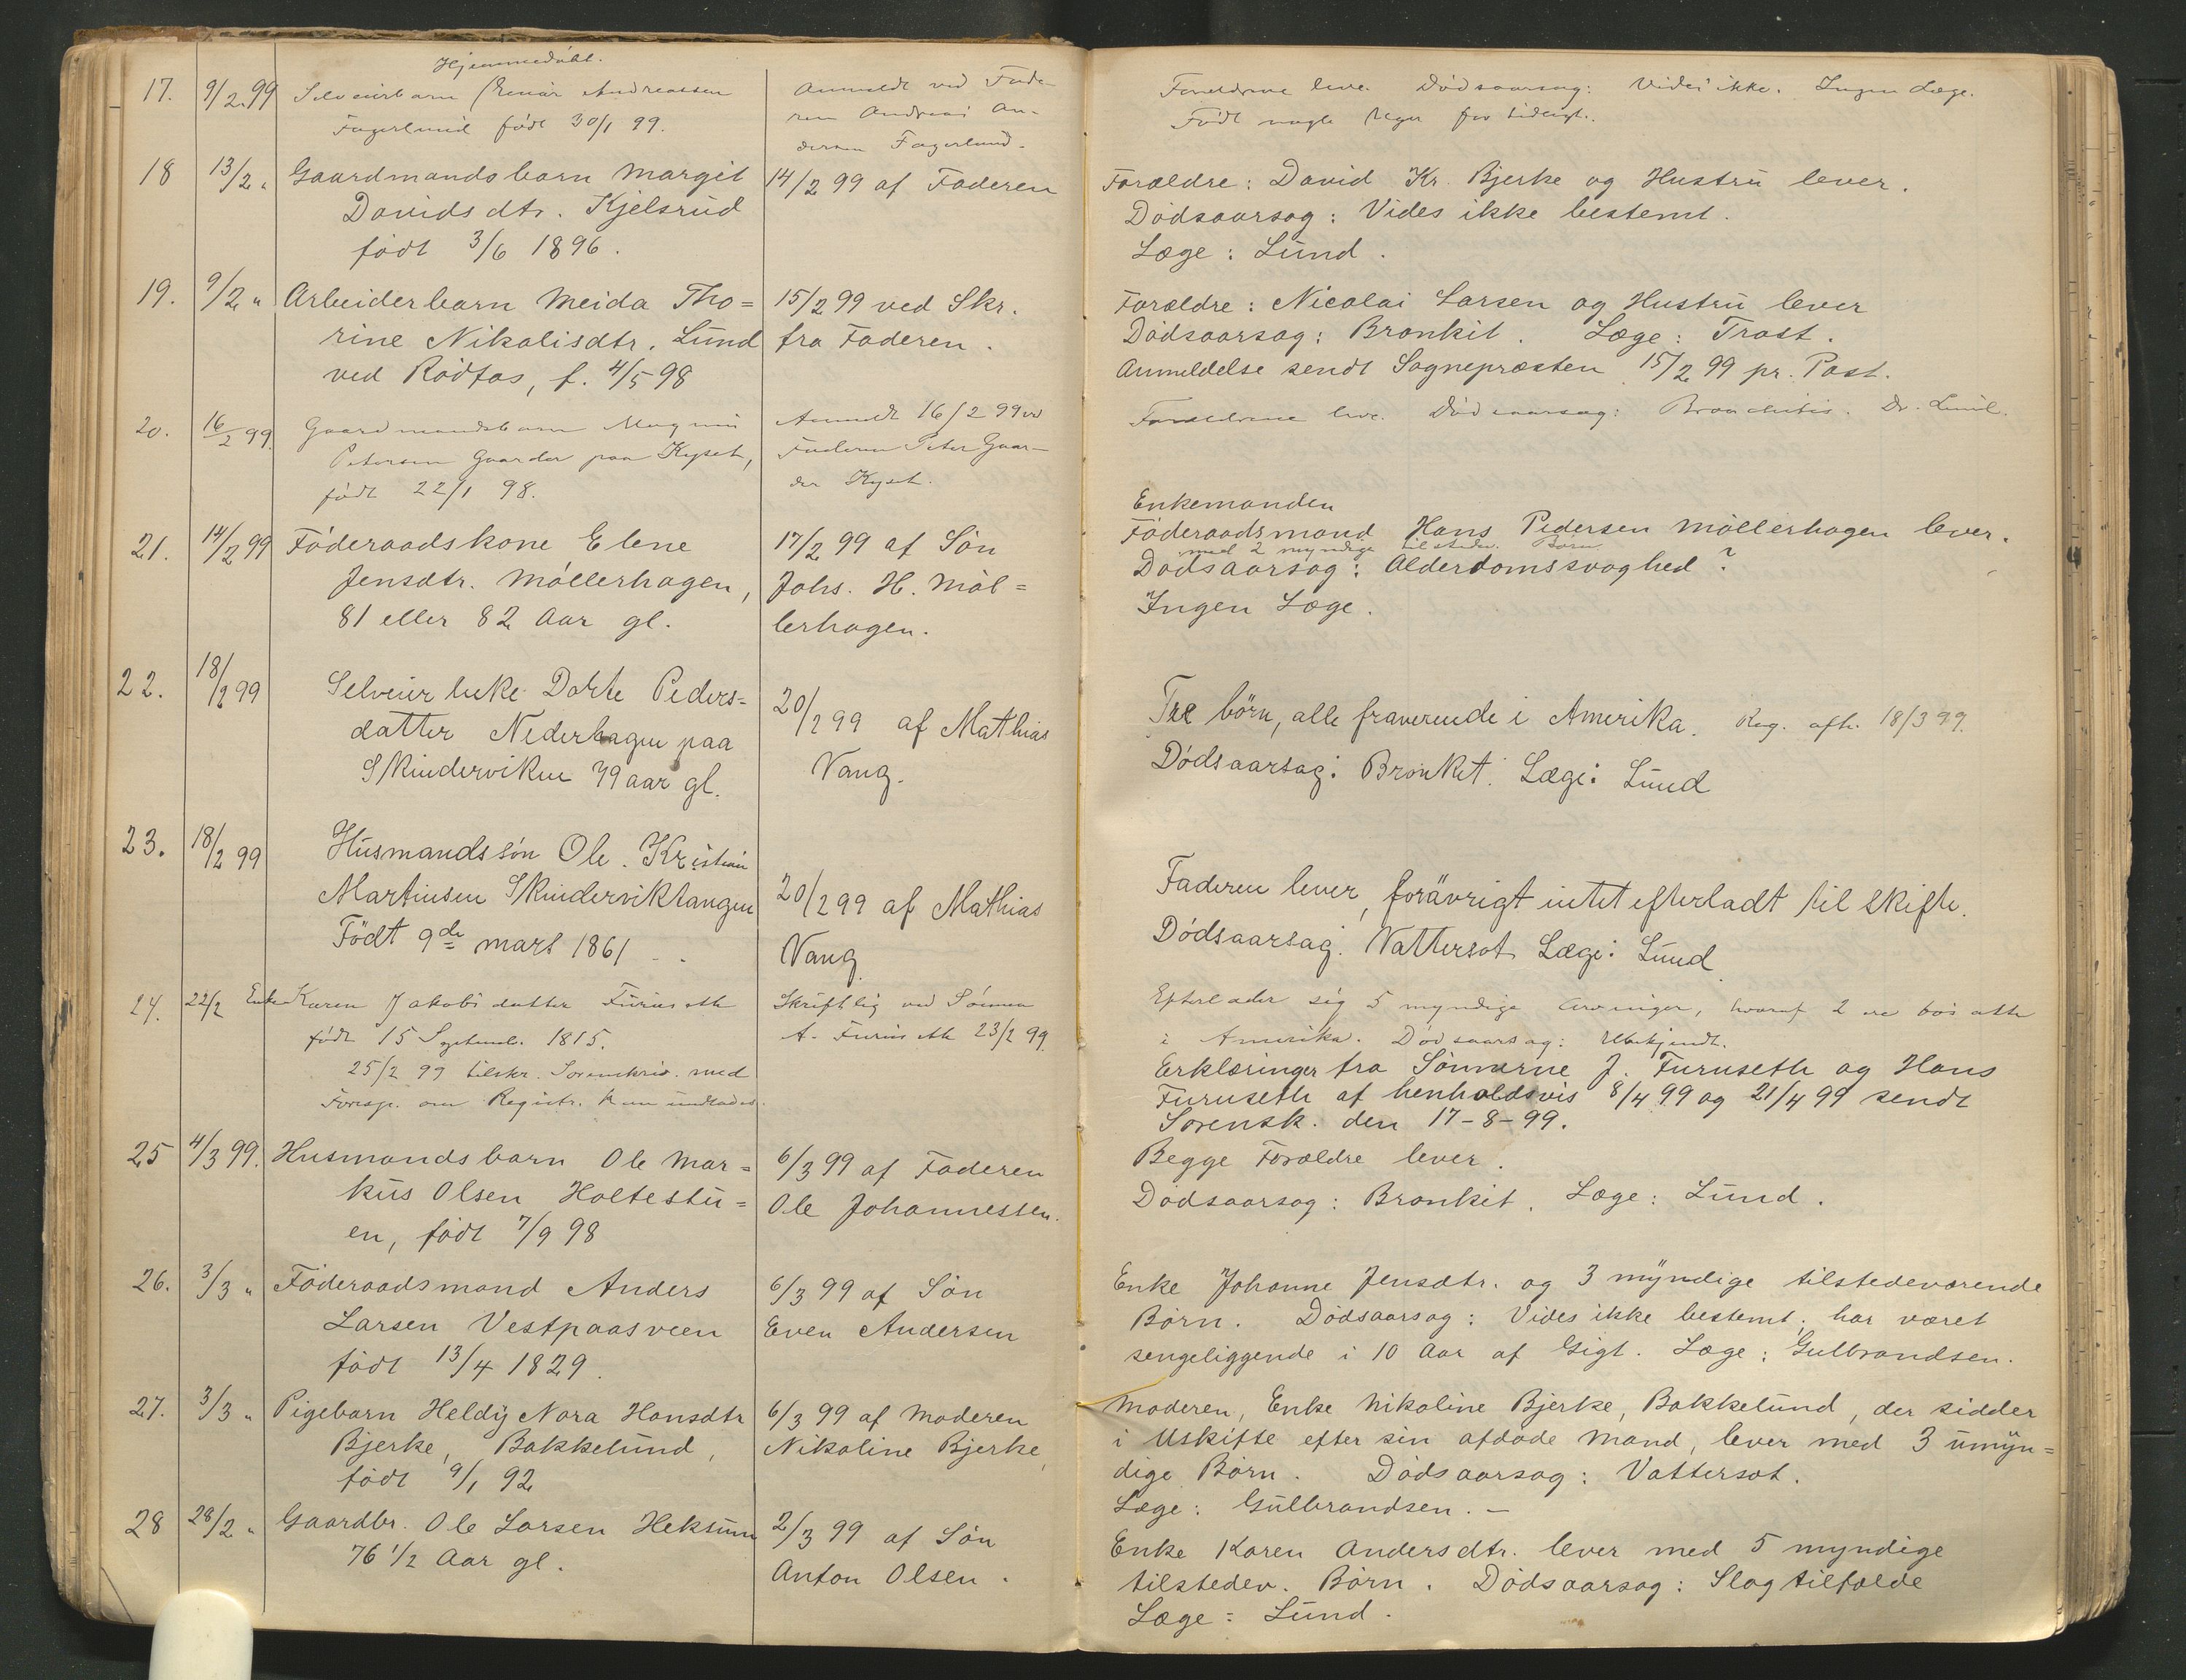 Hjemmedöbt.
17. 9/2 99 Selveierbarn Einar Andreassen
Fagerlund födt 30/1 99.
Anmeldt ved Fade-
ren Andreas An-
dersen Fagerlund.
Forældrene leve. Dödsaarsag: Vides ikke. Ingen Læge.
Födt nogle Uger for tidligt.
18 13/2 " Gaardmandsbarn Margit
Davidsdtr. Kjelsrud
födt 3/6 1896.
14/2 99 af Faderen
Forældre: David Kr. Bjerke og Hustru lever.
Dödsaarsag: Vides ikke bestemt.
Læge: Lund.
19. 9/2 " Arbeiderbarn Meida Tho=
rine Nikolisdtr. Lund
ved Rödfos, f. 4/5 98
15/2 99 ved Skr.
fra Faderen.
Forældre: Nicolai Larsen og Hustru lever
Dödsaarsag: Bronkit. Læge: Trost.
Anmeldelse sendt Sognepræsten 15/2 99 pr. Post.
20. 16/2 99. Gaardmandsbarn Magnus
Petersen Gaarder paa Kyset,
födt 22/1 98.
Anmeldt 16/2 99 ved
Faderen Peter Gaar-
der Kyset.
Forældrene leve. Dödsaarsag: Bronchitis. Dr. Lund.
21. 14/2 99 Föderaadskone Elene
Jensdtr. Möllerhagen,
81 eller 82 Aar gl.
17/2 99 af Sön
Johs. H. Möl=
lerhagen.
Enkemanden
Föderaadsmand Hans Pedersen Möllerhagen lever.
med 2 myndige tilstedev. Börn
Dödsaarsag: Alderdomssvaghed?
Ingen Læge.
22. 18/2 99 Selveierenke Dorte Peders=
datter Nederhagen paa
Skinderviken 79 aar gl.
20/2 99 af Mathias
Vang.
Tre börn, alle fraverende i Amerika. Reg. afh. 18/3 99.
Dödsaarsag: Bronket. Læge: Lund
23. 18/2 99 Husmandssön Ole Kristian
Martinsen Skinderviktangen
Födt 9de mars 1861
20/2 99 af Mathias
Vang.
Faderen lever, forävrigt intet efterladt til Skifte.
Dödsaarsag. Vattersot Læge: Lund
24. 22/2 Enke Karen Jakobsdatter Furuseth
födt 15 Septemb. 1815.
25/2 99 tilskr. Sorenskriv. med
Foresp. om Registr. kan undlades.
Skriftlig ved Sönnen
A. Furuseth 23/2 99.
Efterlader sig 5 myndige Arvinger, hvoraf 2 ere bosatte
i Amerika. Dödsaarsag: Ubekjendt.
Erklæringer fra Sönnerne J. Furuseth og Hans
Furuseth af henholdsvis 8/4 99 og 21/4 99 sendt
Sorensk. den 17-8-99.
25 4/3 99. Husmandsbarn Ole Mar=
kus Olsen Holtestu=
en, födt 7/9 98
6/3 99 af Faderen
Ole Johannessen.
Begge Forældre lever.
Dödsaarsag: Bronkit. Læge: Lund.
26. 3/3 " Föderaadsmand Anders
Larsen Vestpaasveen
födt 13/4 1829.
6/3 99 af Sön
Even Andersen
Enke Johanne Jensdtr. og 3 myndige tilstedeværende
Börn. Dödsaarsag: Vides ikke bestemt, har været
sengeliggende i 10 Aar af Gigt. Læge: Gulbrandsen.
27. 3/3 " Pigebarn Heldy Nora Hansdtr
Bjerke, Bakkelund,
födt 9/1 92
6/3 99 af Moderen
Nikoline Bjerke,
Moderen, Enke Nikoline Bjerke, Bakkelund, der sidder
i Uskifte efter sin afdöde Mand, lever med 3 umyn=
dige Börn. Dödsaarsag: Vattersot.
Læge: Gulbrandsen. -
28 28/2 " Gaardbr. Ole Larsen Heksum
76 1/2 Aar gl.
2/3 99 af Sön
Anton Olsen.
Enke Karen Andersdtr. lever med 5 myndige
tilstedev. Börn. Dödsaarsag: Slagtilfælde
Læge: Lund.